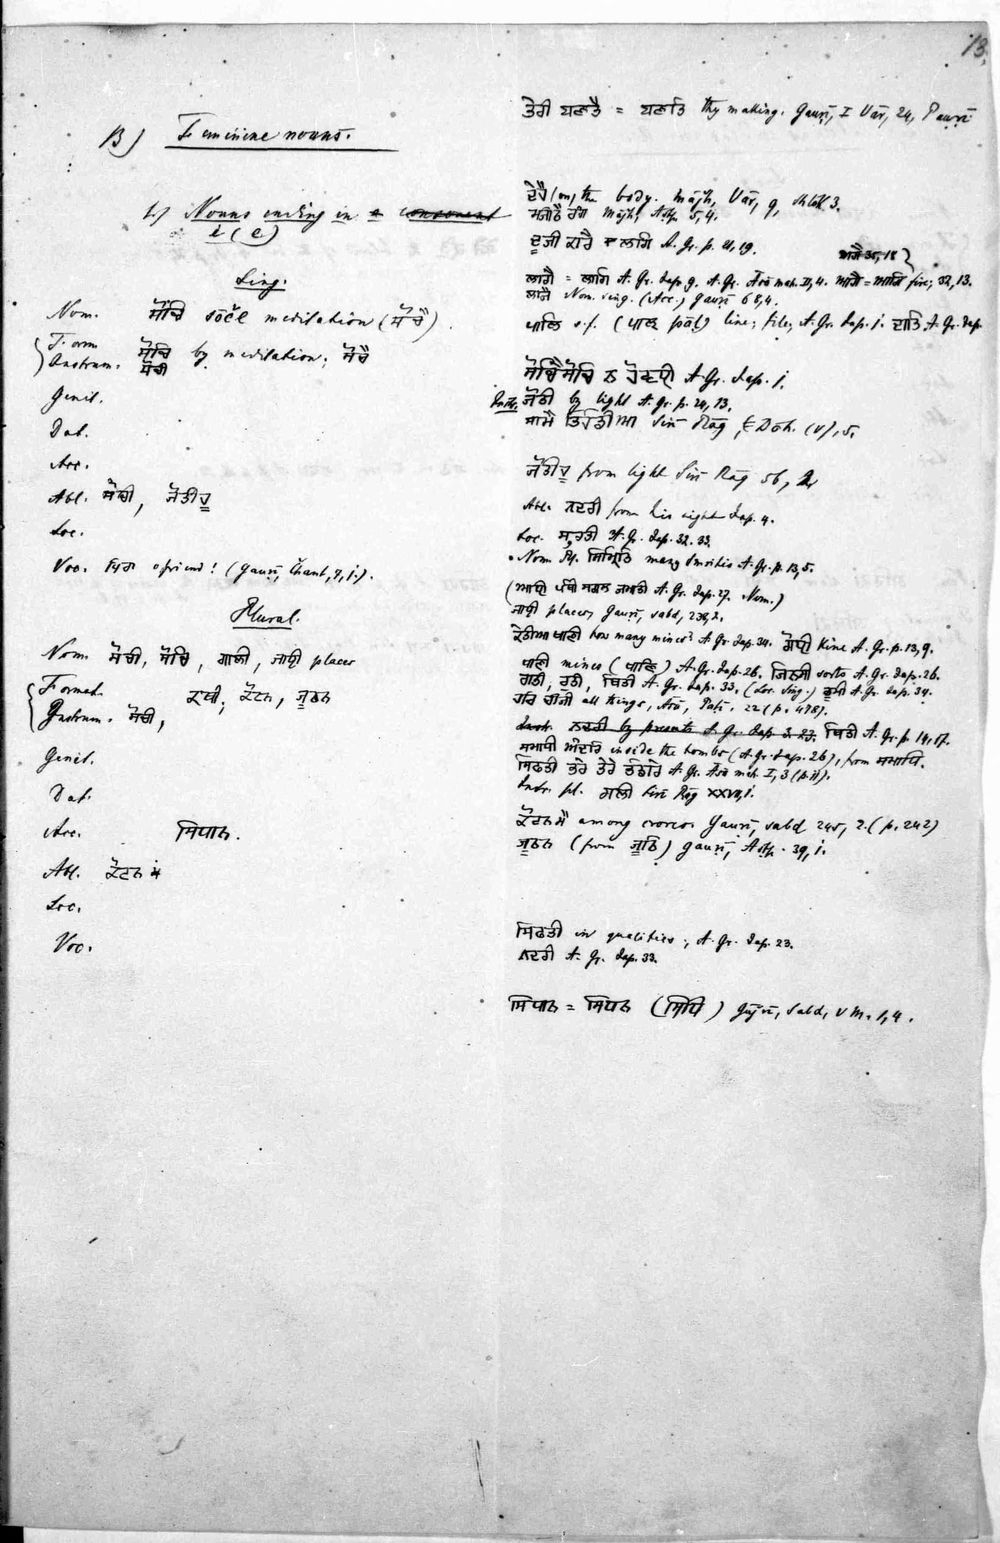 13.
B) Feminine nouns.
1) Nouns ending in a consonent
i (e)
Sing.
Nom. ਸੋਚਿ sŏčĕ meditation (ਸੋਚੈ).
Form
Instrum. ਸੋਚਿ by meditation; ਸੋਚੈ
ਸੋਚੀ
Genit.
Dat.
Acc.
Abl. ਸੋਚੀ, ਜੋਤੀਹੁ
Loc.
Voc. ਮਿਤ੍ਰ o friend! (Gauṛī, Chant, 7, 1.).
Plural.
Nom. ਸੋਚੀ, ਸੋਚਿ, ਗਾਲੀ, ਜਾਈ places
Formed.
Instrum. ਸੋਚੀ, ਕੋਟਨ, ਜੂਠਨ
Genit.
Dat.
Acc. ਸਿਧਾਨ.
Abl. ਕੋਟਨ ਮੈ
Loc.
Voc.
ਤੇਰੀ ਬਣਤੈ = ਬਣਤਿ thy making. Gauṛī, I Vār, 24, Pauṛī
ਦੇਹੈ (on) the body. Mājh, Vār, 9, shlōk 3.
Mājh, Aṣṭp. 5, 4.
ਦੂਜੀ ਕਾਰੈ ਲਾਗਿ A. Gr. p. 4, 19.
ਲਾਗੈ = ਲਾਗਿ A. Gr. Jap. 9. A. Gr. Āsā mah. II, 4. ਆਗੈ = ਆਗਿ fire; 32, 13.
Nom. sing. (Acc.) Gauṛī 68, 4.
ਪਾਲਿ s.f. (ਪਾਲ pāl) line; file, A. Gr. Jap. 1. ਦਾਤਿ A. Gr. Jap.
ਸੋਚੈ ਸੋਚਿ ਨ ਹੋਵਈ A. Gr. Jap. 1.
Instr. ਜੋਤੀ by light A. Gr. p. 24, 13.
Siri Rāg
ਜੋਤੀਹੁ from light Siri Rāg 56, 2
Abl. ਨਦਰੀ from his sight Jap. 4.
Loc. ਸੁਰਤੀ A. Gr. Jap. 32. 33.
Nom. Pl. ਸਿਮ੍ਰਿਤਿ many Smritis A. Gr. p. 13, 5.
(ਆਈ ਪੰਥੀ ਸਗਲ ਜਮਾਤੀ A. Gr. Jap. 27. Nom.)
ਜਾਈ places, Gauṛī, sabd, 238, 2.
ਕੇਤੀਆ ਖਾਣੀ how many mines? A. Gr. Jap. 34. ਗੋਪੀ Kine A. Gr. p. 13, 9.
ਖਾਣੀ mines (ਖਾਣਿ) A. Gr. Jap. 26. ਜਿਨਸੀ sorts A. Gr. Jap. 26.
ਰਾਤੀ, ਰੁਤੀ, ਥਿਤੀ A. Gr. Jap. 33. (Loc. Sing.) A. Gr. Jap. 34.
all things, Āsā, Paṭī, 22 (p. 478).
Instr. ਨਦਰੀ by presents A. Gr. Jap. 3. 23. ਥਿਤੀ A. Gr. p. 14, 17.
ਸਮਾਧੀ ਅੰਦਰਿ inside the tombs (A. Gr. Jap. 26), from ਸਮਾਧਿ.
ਸਿਫਤੀ ਭਰੇ ਤੇਰੇ ਭੰਡਾਰੇ A. Gr. Āsā mah. I, 3 (p. 11).
Instr. pl. ਗਲੀ Siri Rāg XXVII, 1.
ਕੋਟਨ ਮੈ among crores Gauṛī, sabd 245, 2. (p. 242)
ਜੂਠਨ (from ਜੂਠਿ) Gauṛī, Aṣṭp. 39, 1.
ਸਿਫਤੀ in qualities; A. Gr. Jap. 23.
ਨਦਰੀ A. Gr. Jap. 33.
ਸਿਧਾਨ = ਸਿਧਨ (ਸਿਧਿ) Gūjrī, Sabd, V M. 1, 4.